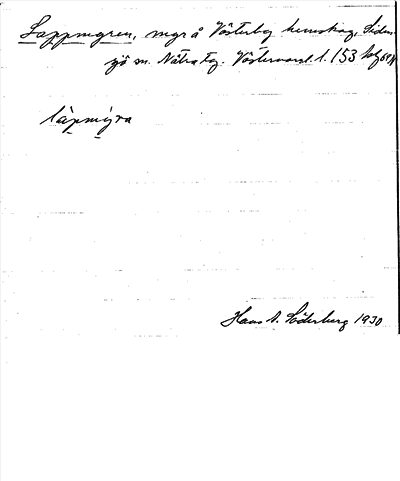 Lappmyren, myr å Västerby hemskog, Siden-
sjö sn. Nätra tg. Västernorrl. l. 153
lapmýra
Hans A. Söderberg 1930